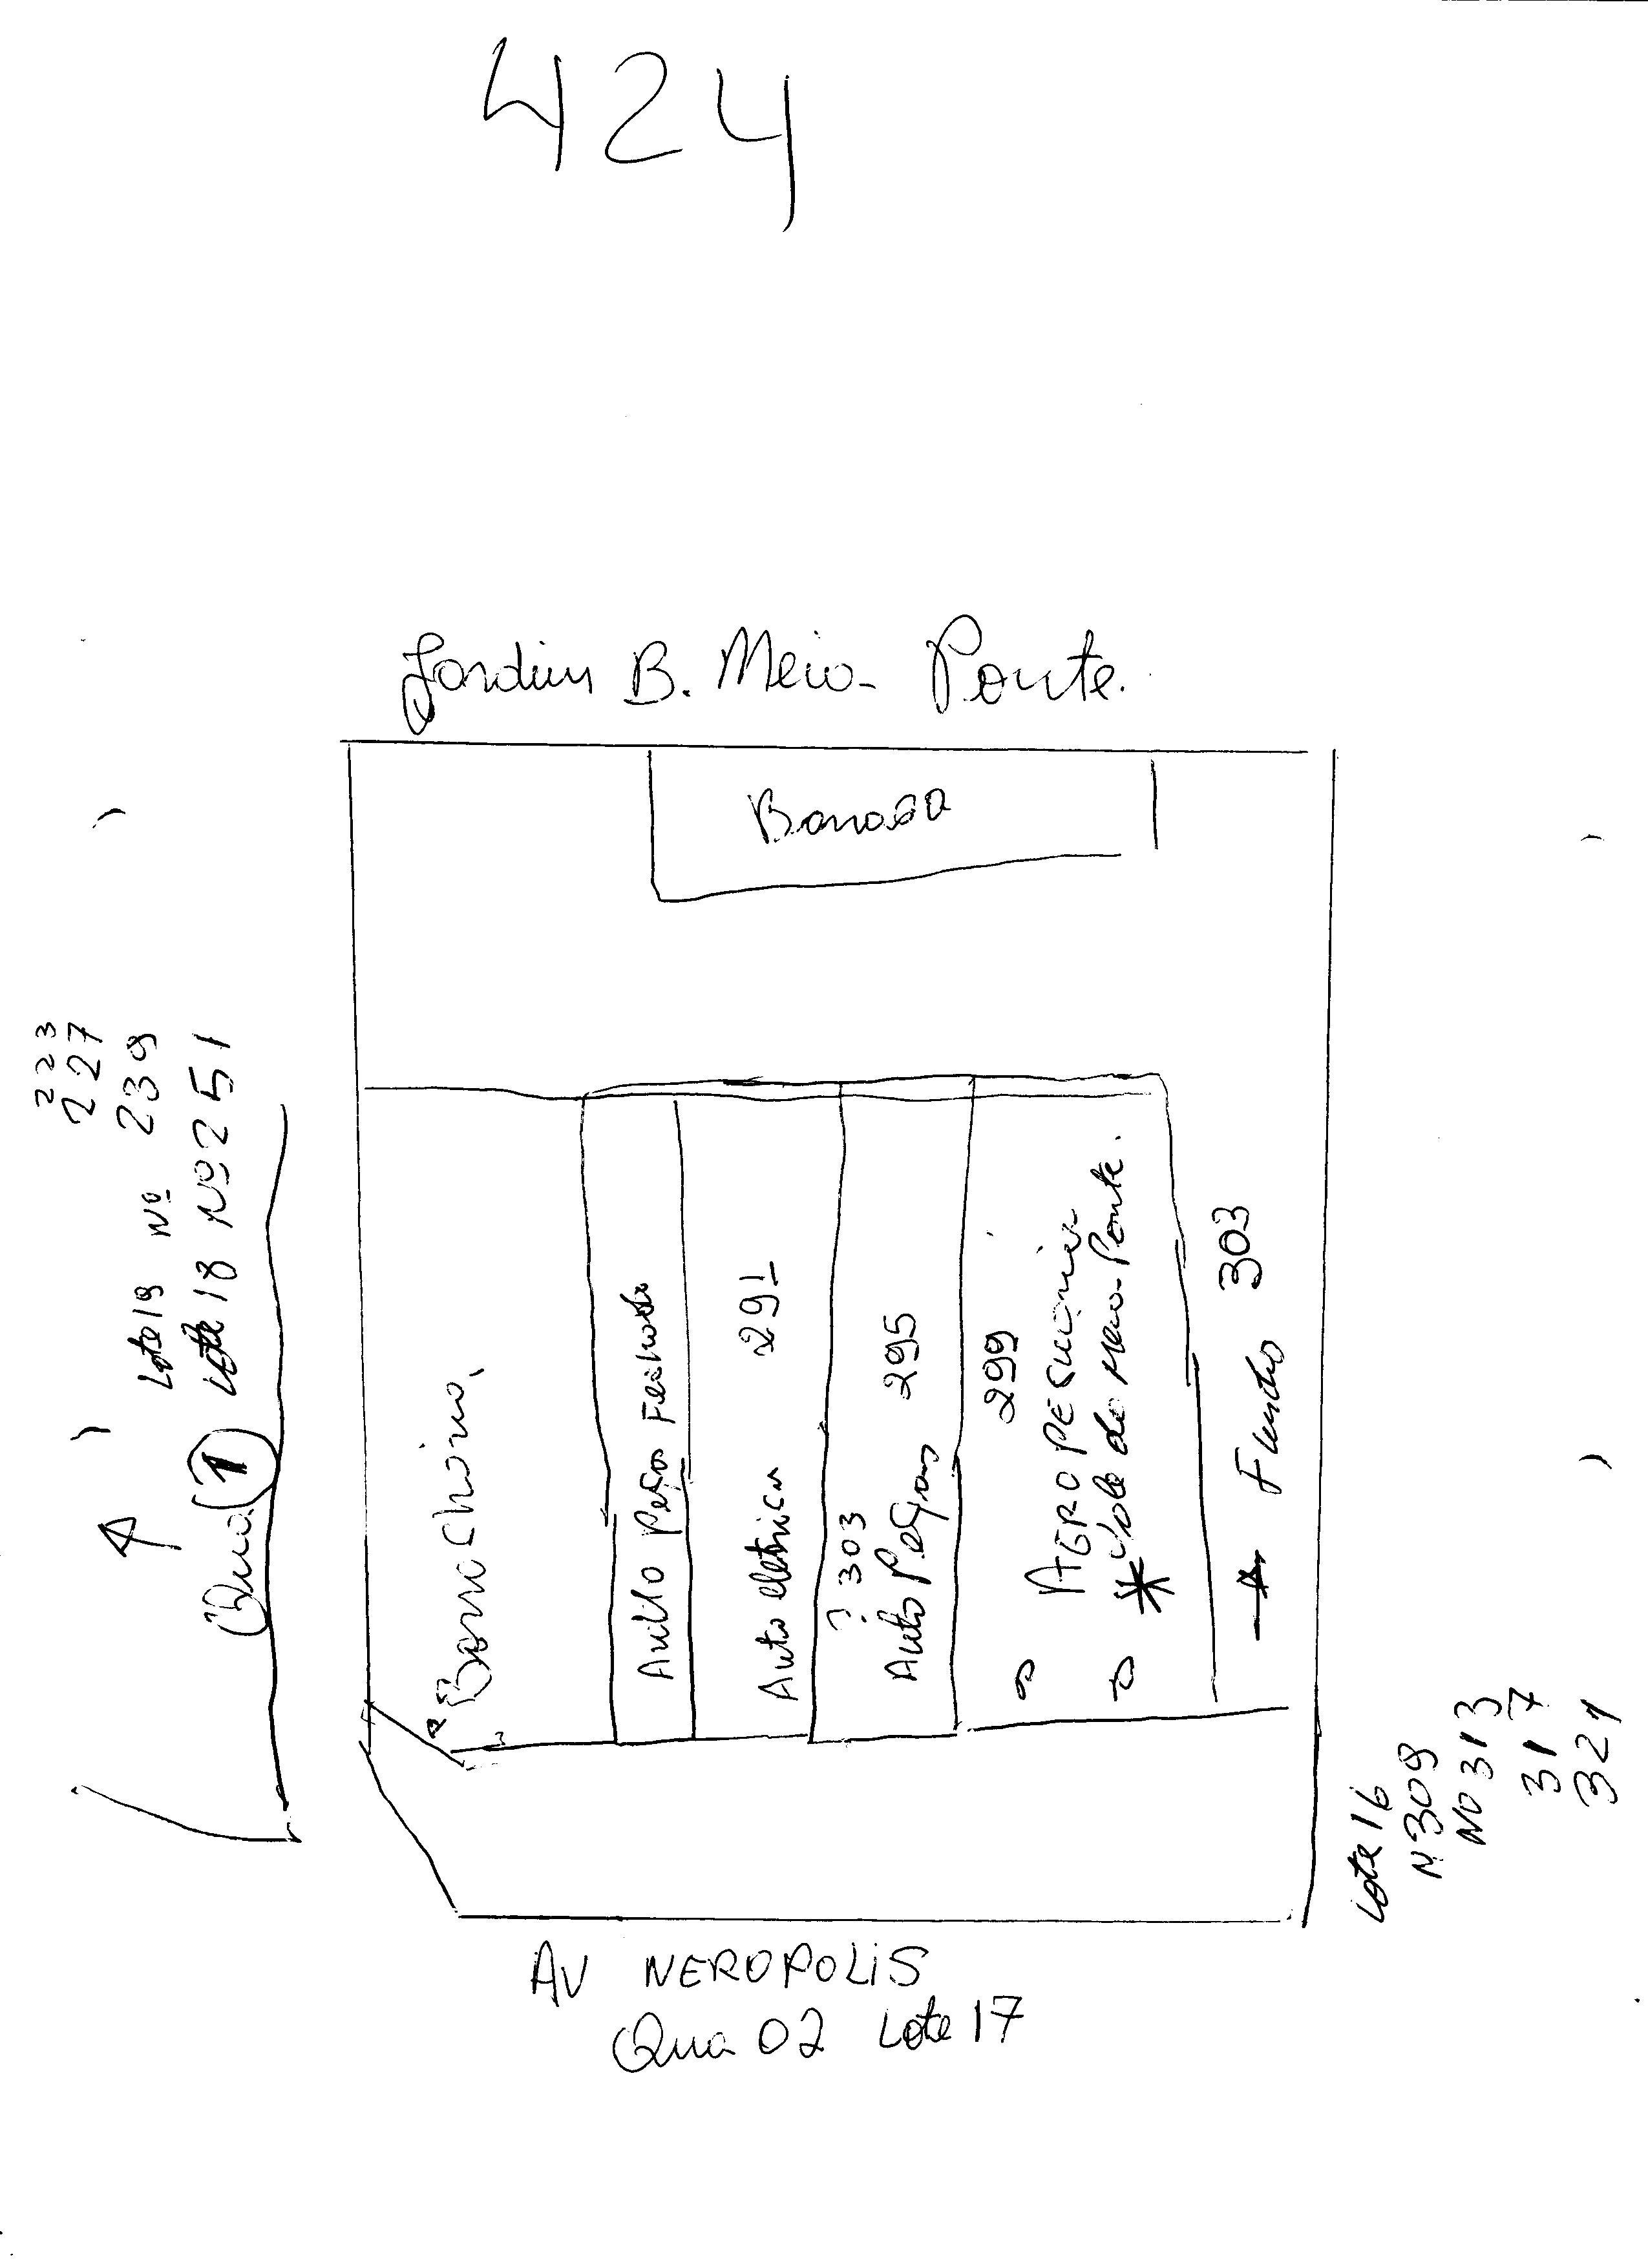 424
Jardim B. Meio- Ponte.
223
227
Lote 19 Nº 239
Lote 18 Nº 251
Qua 1
Borracharia
Auto Peças Fechada
Auto eletrica 291
? 303
Auto Peças 295
299
AGROPECUÁRIA
* Vale do Meio-Ponte.
Fundo 303
Lote 16
N 309
Nº 313
317
321
AV NEROPOLIS
Qua 02 Lote 17